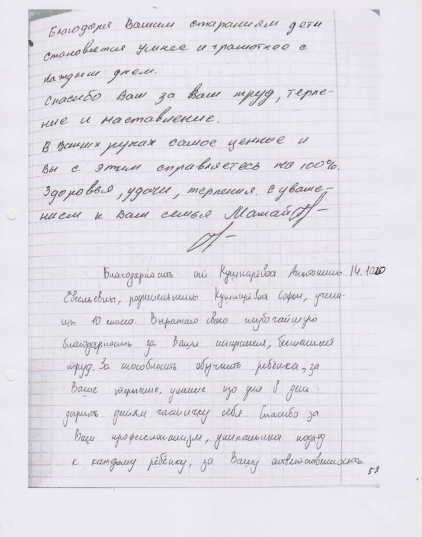 Благодаря Вашим стараниям дети
становятся умнее и грамотнее с
каждым днем.
Спасибо Вам за Ваш труд, терпе-
ние и наставление.
В Ваших руках самое ценное и
Вы с этим справляетесь на 100%.
Здоровья, удачи, терпения. С уваже-
нием к Вам семья
Благодарность от
родительницы Софьи, учени-
цы 10 класса. Выражаю свою глубочайшую
благодарность за Ваши старания,
труд. За способность обучить ребёнка, за
Ваше терпение, умение изо дня в день
дарить детям частичку себя. Спасибо за
Ваш профессионализм, уникальный подход
к каждому ребёнку, за Вашу ответственность.
53